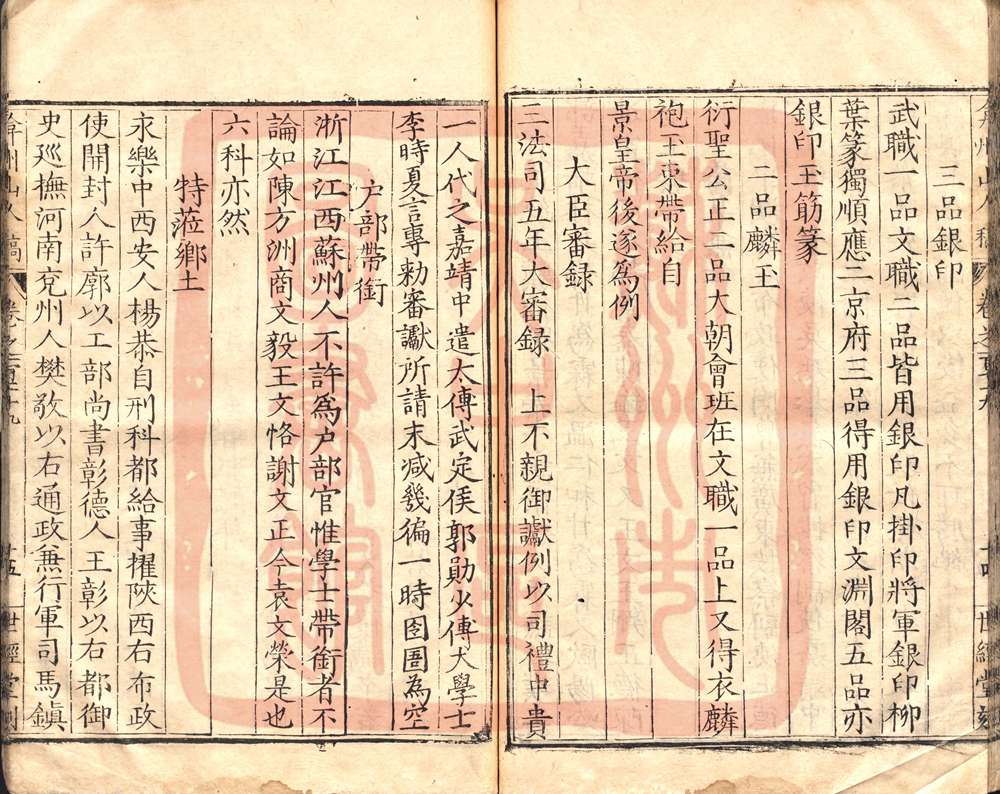 三品銀印
武職一品文職二品皆用銀印凡掛印將軍銀印柳
葉篆獨順應二京府三品得用銀印文淵閣五品亦
銀印玉筯篆
二品麟玉
衍聖公正二品大朝會班在文職一品上又得衣麟
袍玉束帶給自
景皇帝後遂為例
大臣審録
三法司五年大審録 上不親御讞例以司禮中貴
一人代之嘉靖中遣太傅武定侯郭勛少傅大學士
李時夏言專勑審讞所請末减幾徧一時囹圄為空
户部帶銜
浙江江西蘇州人不許為户部官惟學士帶銜者不
論如陳方洲商文毅王文恪謝文正今袁文榮是也
六科亦然
特蒞鄉土
永樂中西安人楊恭自刑科都給事擢陝西右布政
使開封人許廓以工部尚書彰德人王彰以右都御
史廵撫河南兖州人樊敬以右通政兼行軍司馬鎮
弇州山人稿 卷之一百 十九 十五 世經堂刻